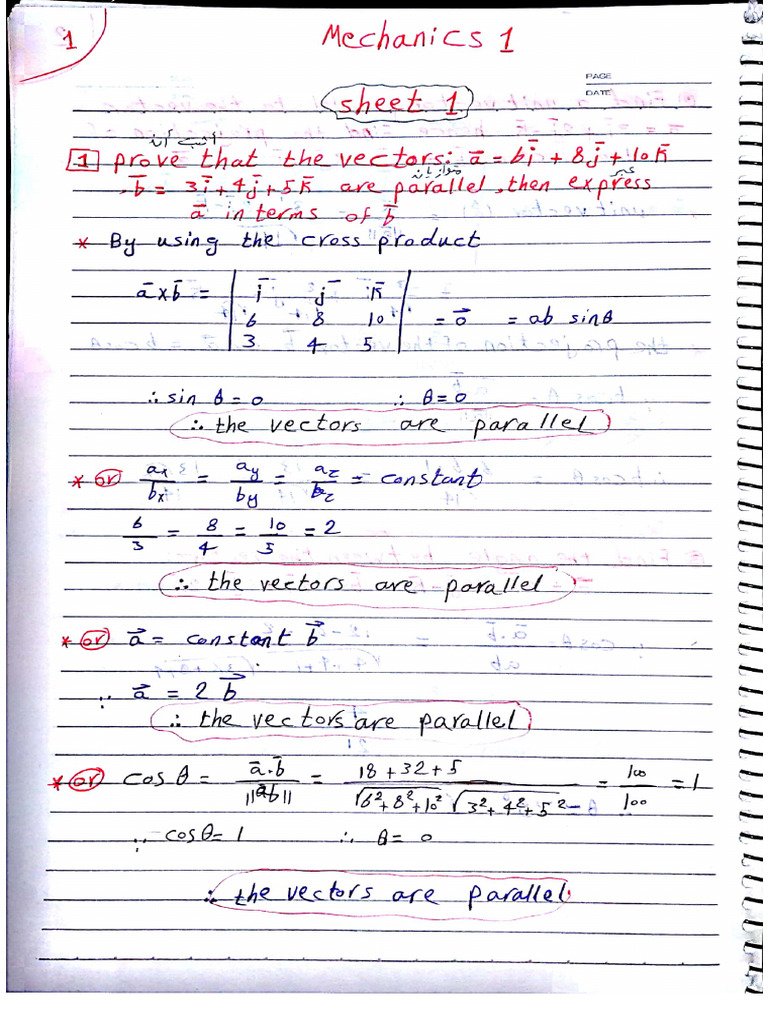 1
Mechanics 1
PAGE
DATE
sheet 1
أثبت أن
1 prove that the vectors: a̅ = 6i̅ + 8j̅ + 10k̅
, b̅ = 3i̅ + 4j̅ + 5k̅ are parallel, then express
a̅ in terms of b̅
* By using the cross product
a̅xb̅ = | i̅ j̅ k̅ |
6 8 10 = 0⃗ = ab sinθ
3 4 5
∴ sin θ = 0 ∴ θ = 0
∴ the vectors are parallel
* or ax/bx = ay/by = az/bz = constant
6/3 = 8/4 = 10/5 = 2
∴ the vectors are parallel
* or a⃗ = constant b⃗
∵ a⃗ = 2 b⃗
∴ the vectors are parallel
* or cos θ = a̅.b̅/||ab|| = 18+32+5/√6²+8²+10² √3²+4²+5² = 100/100 = 1
∵ cosθ = 1 ∴ θ = 0
∴ the vectors are parallel